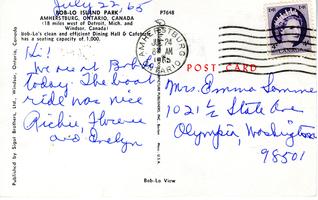 July 22, 65
BOB-LO ISLAND PARK
P7648
AMHERSTBURG, ONTARIO, CANADA
(18 miles west of Detroit, Mich. and
Windsor, Canada)
Bob-Lo's clean and efficient Dining Hall & Cafeteria
has a seating capacity of 1,000.
Hi!
We are at Boblo
today. The boat
ride was nice
Richie, Florence
and Evelyn
AMHERSTBURG
AM
ONTARIO
CANADA
POST CARD
Mrs. Emma
1021 1/2 State Ave
Olympia, Washington
98501
Bob-Lo View
Published by Sigar Brothers, Ltd., Windsor, Ontario,